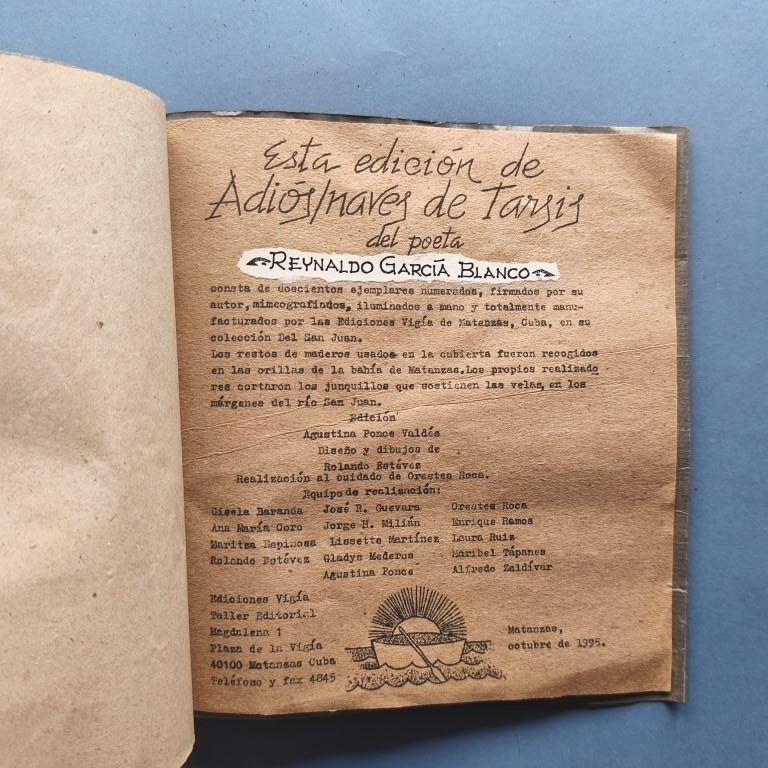 Esta edición de
Adiós/naves de Tarsis
del poeta
REYNALDO GARCÍA BLANCO
consta de doscientos ejemplares numerados, firmados por su
autor, mimeografiados, iluminados a mano y totalmente manu-
facturados por las Ediciones Vigía de Matanzas, Cuba, en su
colección Del San Juan.
Los restos de maderos usados en la cubierta fueron recogidos
en las orillas de la bahía de Matanzas.Los propios realizado
res cortaron los junquillos que sostienen las velas, en los
márgenes del río San Juan.
Edición
Agustina Ponce Valdés
Diseño y dibujos de
Rolando Estévez
Realización al cuidado de Orestes Roca.
Equipo de realización:
Gisela Baranda José R. Guevara Orestes Roca
Ana María Coro Jorge H. Milián Enrique Ramos
Maritza Espinosa Lissette Martínez Laura Ruiz
Rolando Estévez Gladys Mederos Maribel Tápanes
Agustina Ponce Alfredo Zaldívar
Ediciones Vigía
Taller Editorial
Magdalena 1
Plaza de la Vigía
40100 Matanzas Cuba
Teléfono y fax 4845
Matanzas,
octubre de 1995.